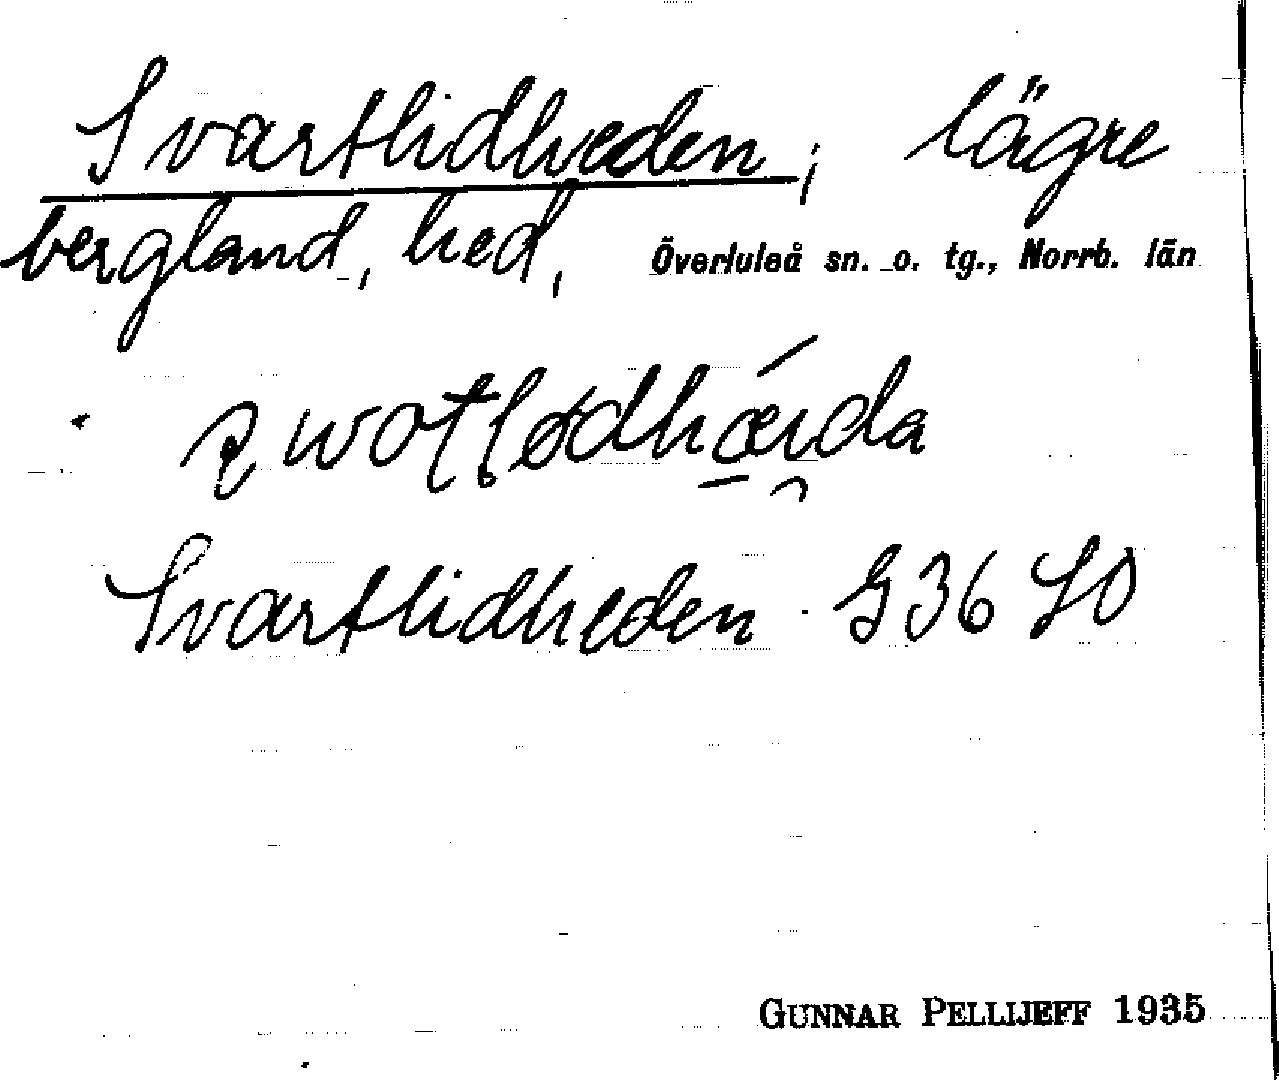 Svartlidheden, lägre
bergland, hed, Överluleå sn. o. tg., Norrb. län
Svartlidheden G36 SO
GUNNAR PELLIJEFF 1935